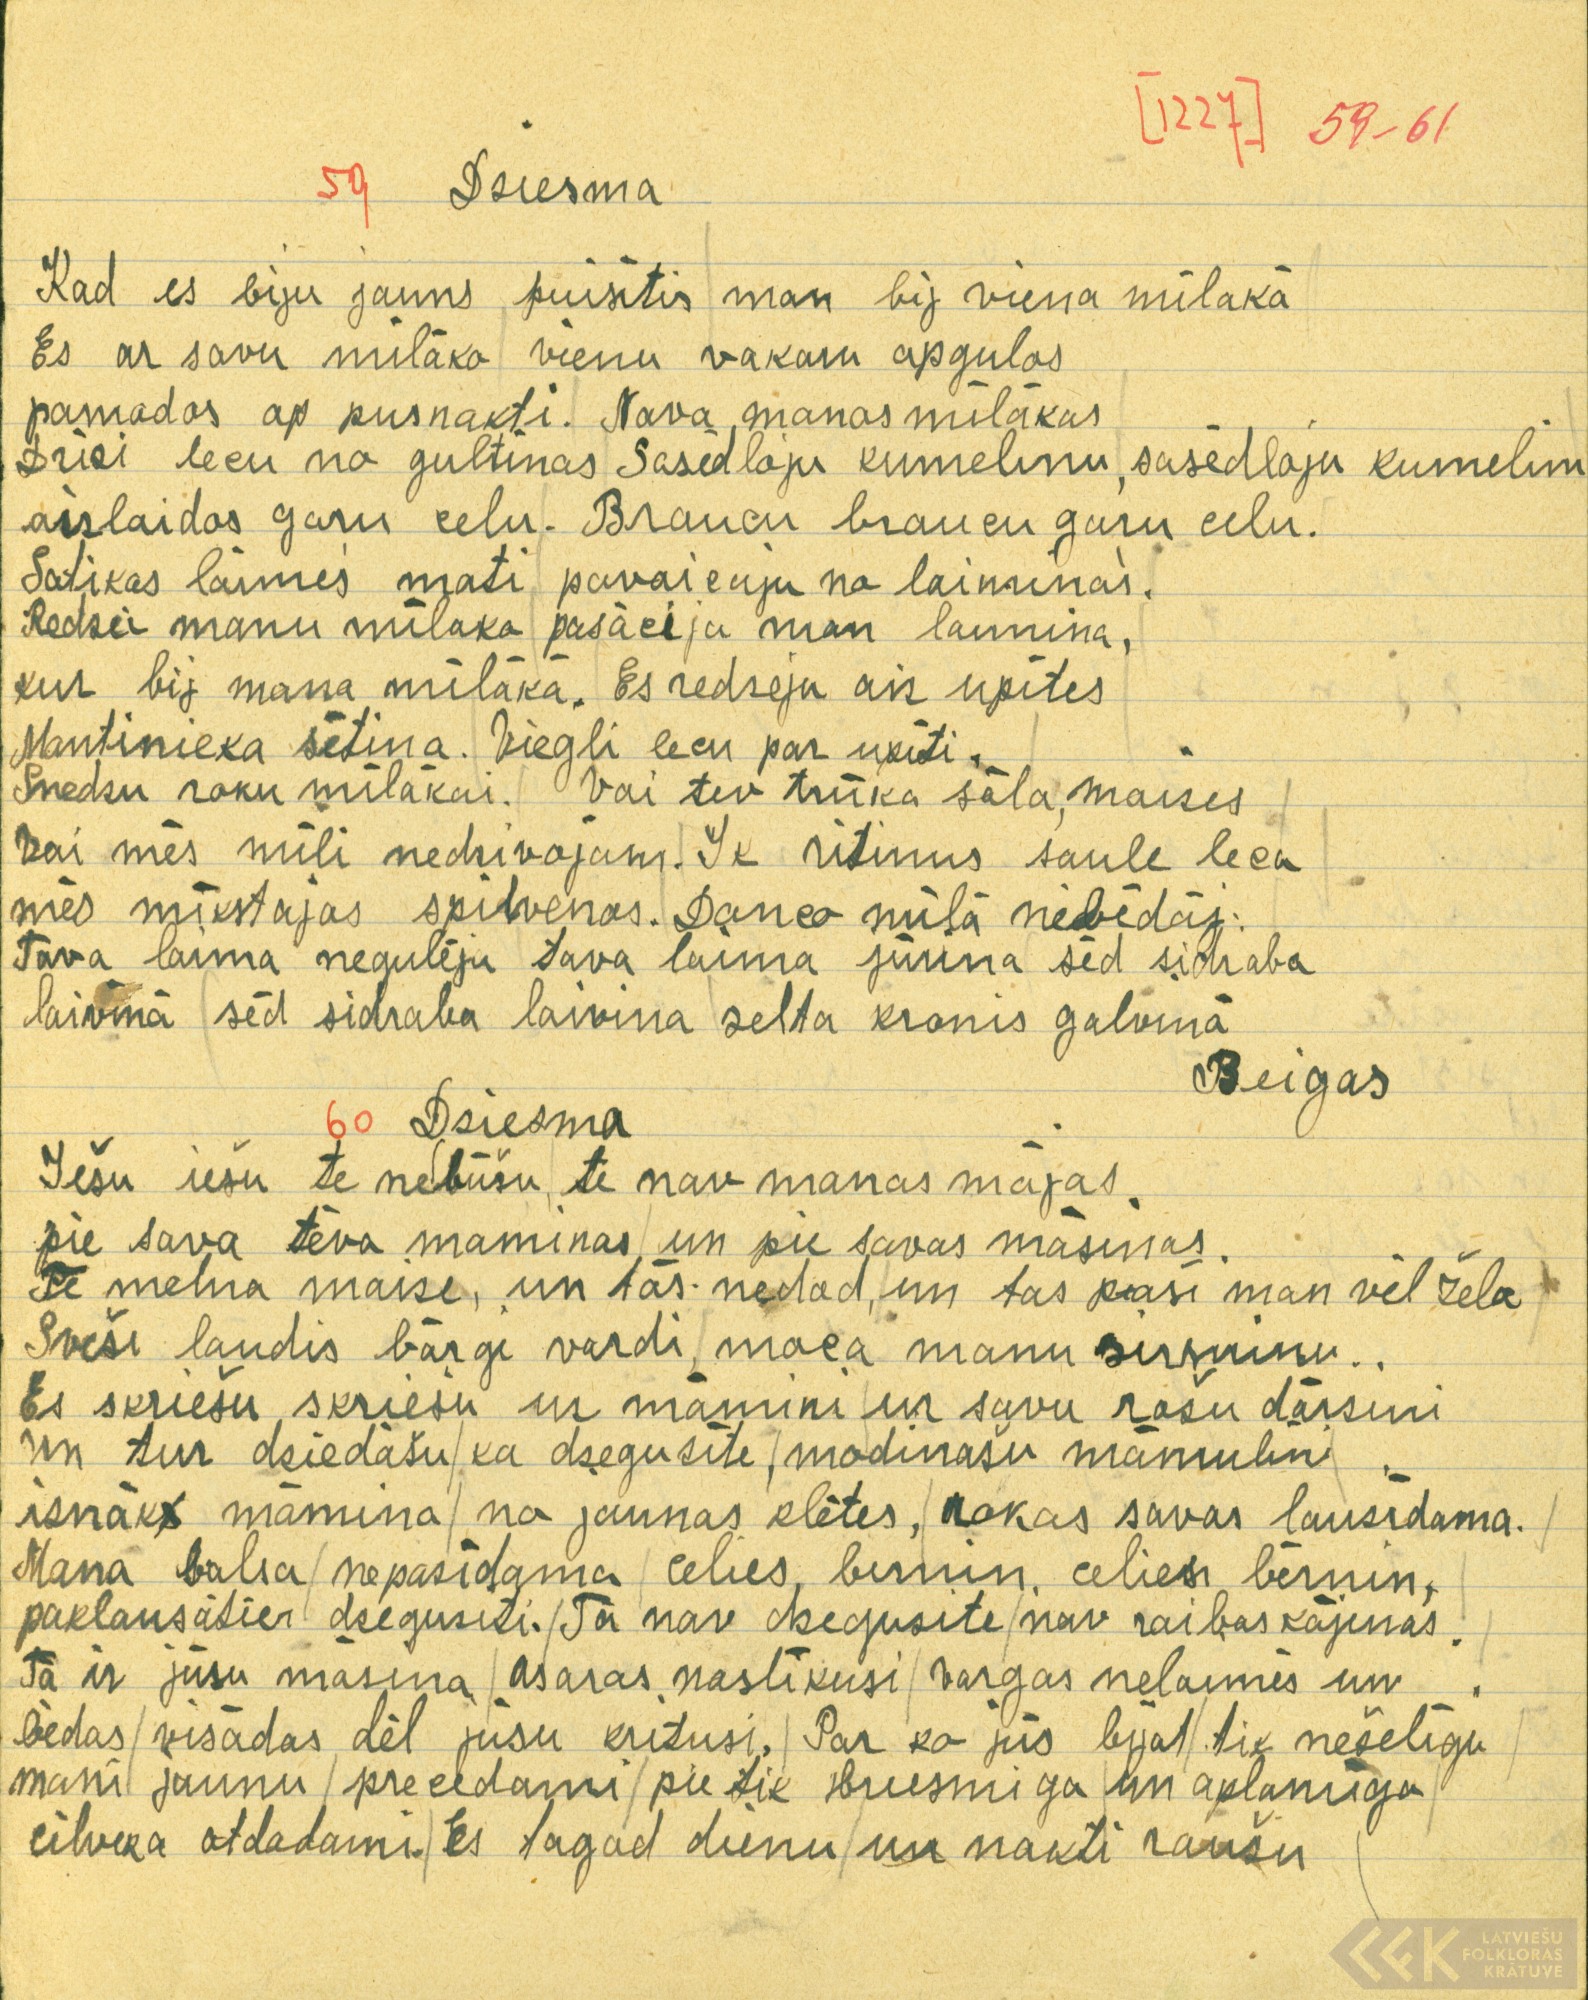 [1227] 59-61
59 Dsiesma
Kad es biju jauns puisītis man bij viena mīlakā
Es ar savu mīlāko vienu vakaru apgulos
pamodos ap pusnakti. Nava manas mīlākas
Drīsi lecu no gultinas Sasēdloju kumelinu, sasēdloju kumelinu
aislaidos garu celu. Braucu braucu garu celu.
Satikas laimes mati pavaicaju no laiminas.
Redsei manu mīlako pasācija man laimina,
kur bij mana mīlākā. Es redseju ais upītes
Mantinieka sētina. Viegli lecu par upīti.
Snedsu roku mīlākai. Vai tev trūka sāla, maises
Vai mēs mīli nedsivojam. Ik rītinus saule leca
mēs mīkstajas spilvenos. Danco mīlā nebēdāj.
Tava laima negulēju tava laima jūrina sēd sidraba
laivinā sēd sidraba laivina selta kronis galvinā
Beigas
60 Dsiesma
Iešu iešu te nebūšu te nav manas mājas.
pie sava tēva maminas un pie savas māsinas.
Te melna maise, un tās nedod, un tas pasi man vēl žēla
Sveši laudis bārgi vardi moca manu sirsninu..
Es skriešu skriešu ur māmini ur savu rošu dārsini
un tur dsiedāšu ka dsegusīte, modinašu māmulin
isnāks māmina no jaunas klētes, rokas savas lausīdama.
Mana balsa nepasīdama celies, bernin, celies bērnin,
paklausāties dsegusiti. Tā nav dsegusite nav raibas kājinas.
Tā ir jūsu māsina asaras naslīkusi vargas nelaimēs un
bēdas visādas dēl jūsu kritusi. Par ko jūs bijat tik nešelīgu
mani jaunu precēdami pie tik briesmiga un aplamīga
cilveka atdodami. Es tagad dienu un nakti raušu
LATVIEŠU
FOLKLORAS
KRĀTUVE